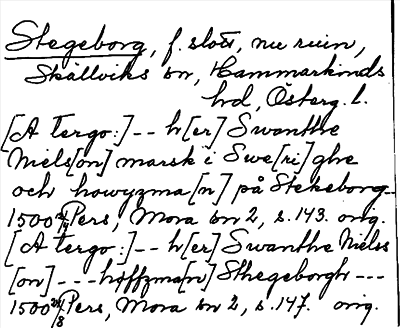 Stegeborg, f. slott, nu ruin,
Skällviks sn, Hammarkinds
hd, Österg. l.
[A tergo:] -- h[er] Swanthe
Niels[on] marsk i Swe[ri]ghe
och howyzma[n] på Stekeborg --
1500 Pers, Mora sn 2, s. 143. orig.
[A tergo:] -- h[er] Swanthe Nielss
[on] --- höffzma[n] Sthegeborgh ---
1500 Pers, Mora sn 2, s. 147. orig.